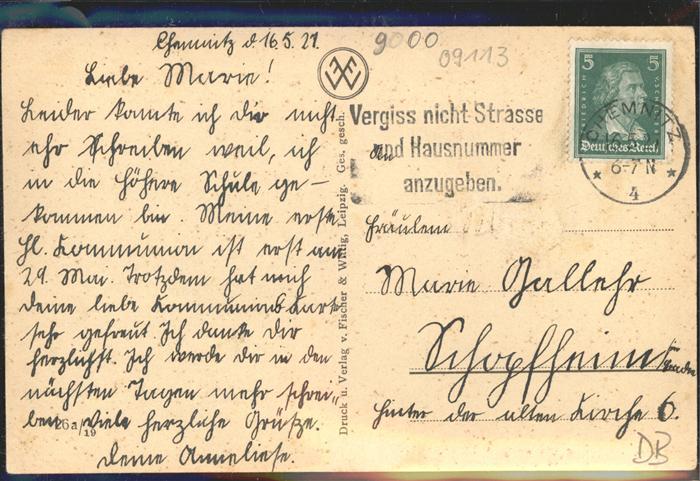 Chemnitz d 16.5.27.
Liebe Marie!
Leider konnte ich dir nicht
ehr Schreiben weil, ich
in die höhere Schule ge-
kommen bin. Meine erste
hl. Kommunion ist erst am
29. Mai. Trotzdem hat mich
deine liebe Kommunionskarte
sehr gefreut. Ich danke dir
herzlichst. Ich werde dir in den
nächsten Tagen mehr schrei-
ben. Viele herzliche Grüße.
Deine Anneliese.
26a/19
Druck u. Verlag v. Fischer & Wittig, Leipzig. Ges. gesch.
9000
09113
Vergiss nicht Strasse
und Hausnummer
anzugeben.
5 5
FRIEDRICH
Deutsches Reich
CHEMNITZ
6-7 N
* 4 *
Fräulein
Marie Gallehr
Schopfheim
hinter der alten Kirche 6.
DB